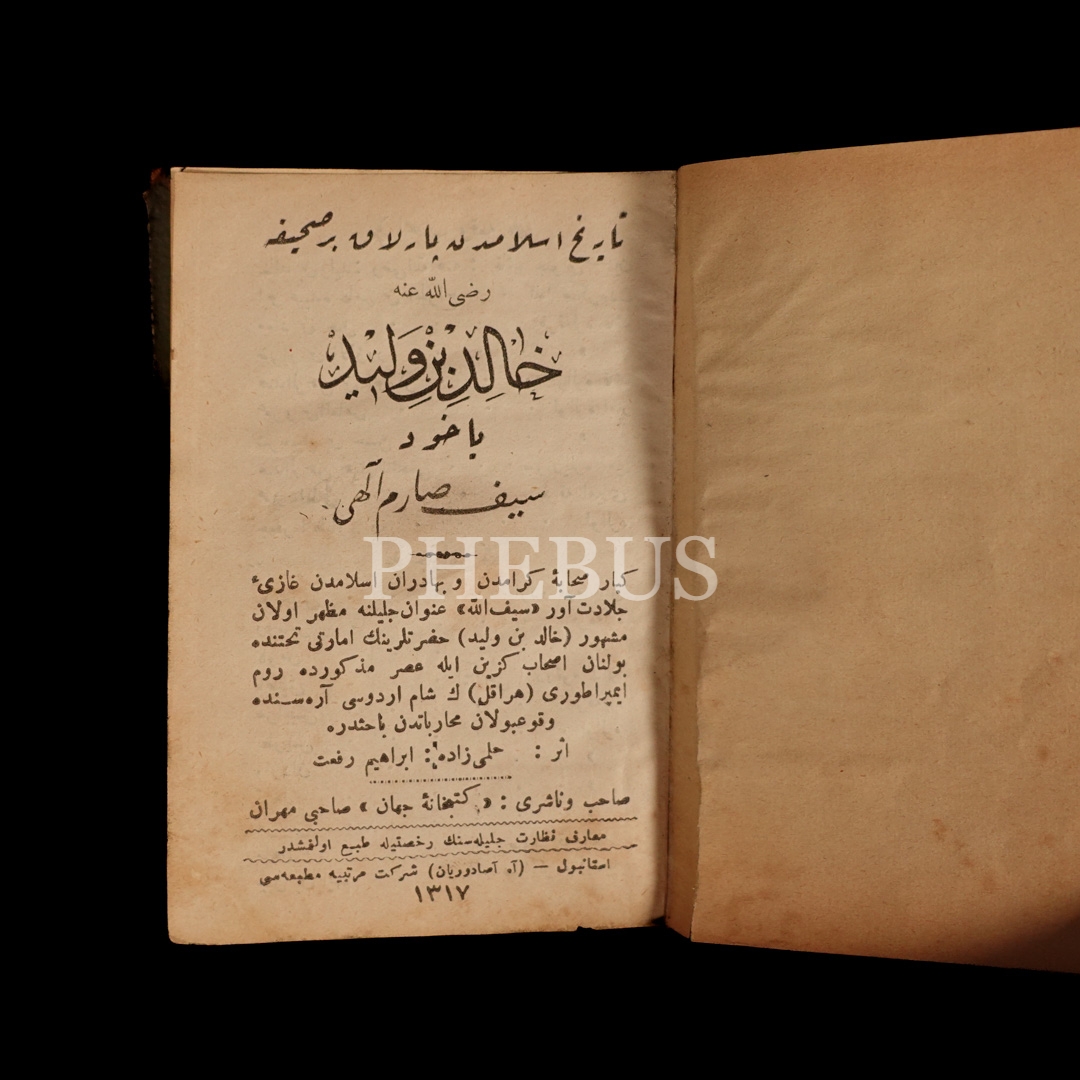 تاريخ اسلامدن پارلاق بر صحيفه
رضى الله عنه
خَالِدِ بْنِ وَلِيدْ
ياخود
سيف صارم آلهى
PHEBUS
كبار صحابهٔ كرامدن و بهادران اسلامدن غازىٔ
جلادت آور «سيف الله» عنوان جليلنه مظهر اولان
مشهور (خالد بن وليد) حضرتلرينك امارتى تحتنده
بولنان اصحاب كزين ايله عصر مذكورده روم
ايمپراطورى (هراقل) ك شام اردوسى آره‌سـنده
وقوعبولان محارباتدن باحثدره
اثر : حلمى زاده : ابراهيم رفعت
صاحب وناشرى : « كتبخانهٔ جهان » صاحبى مهران
معارف نظارت جليله‌سنك رخصتيله طبع اولنمشدر
استانبول — (آ. آصادوريان) شركت مرتبيه مطبعه‌سى
١٣١٧